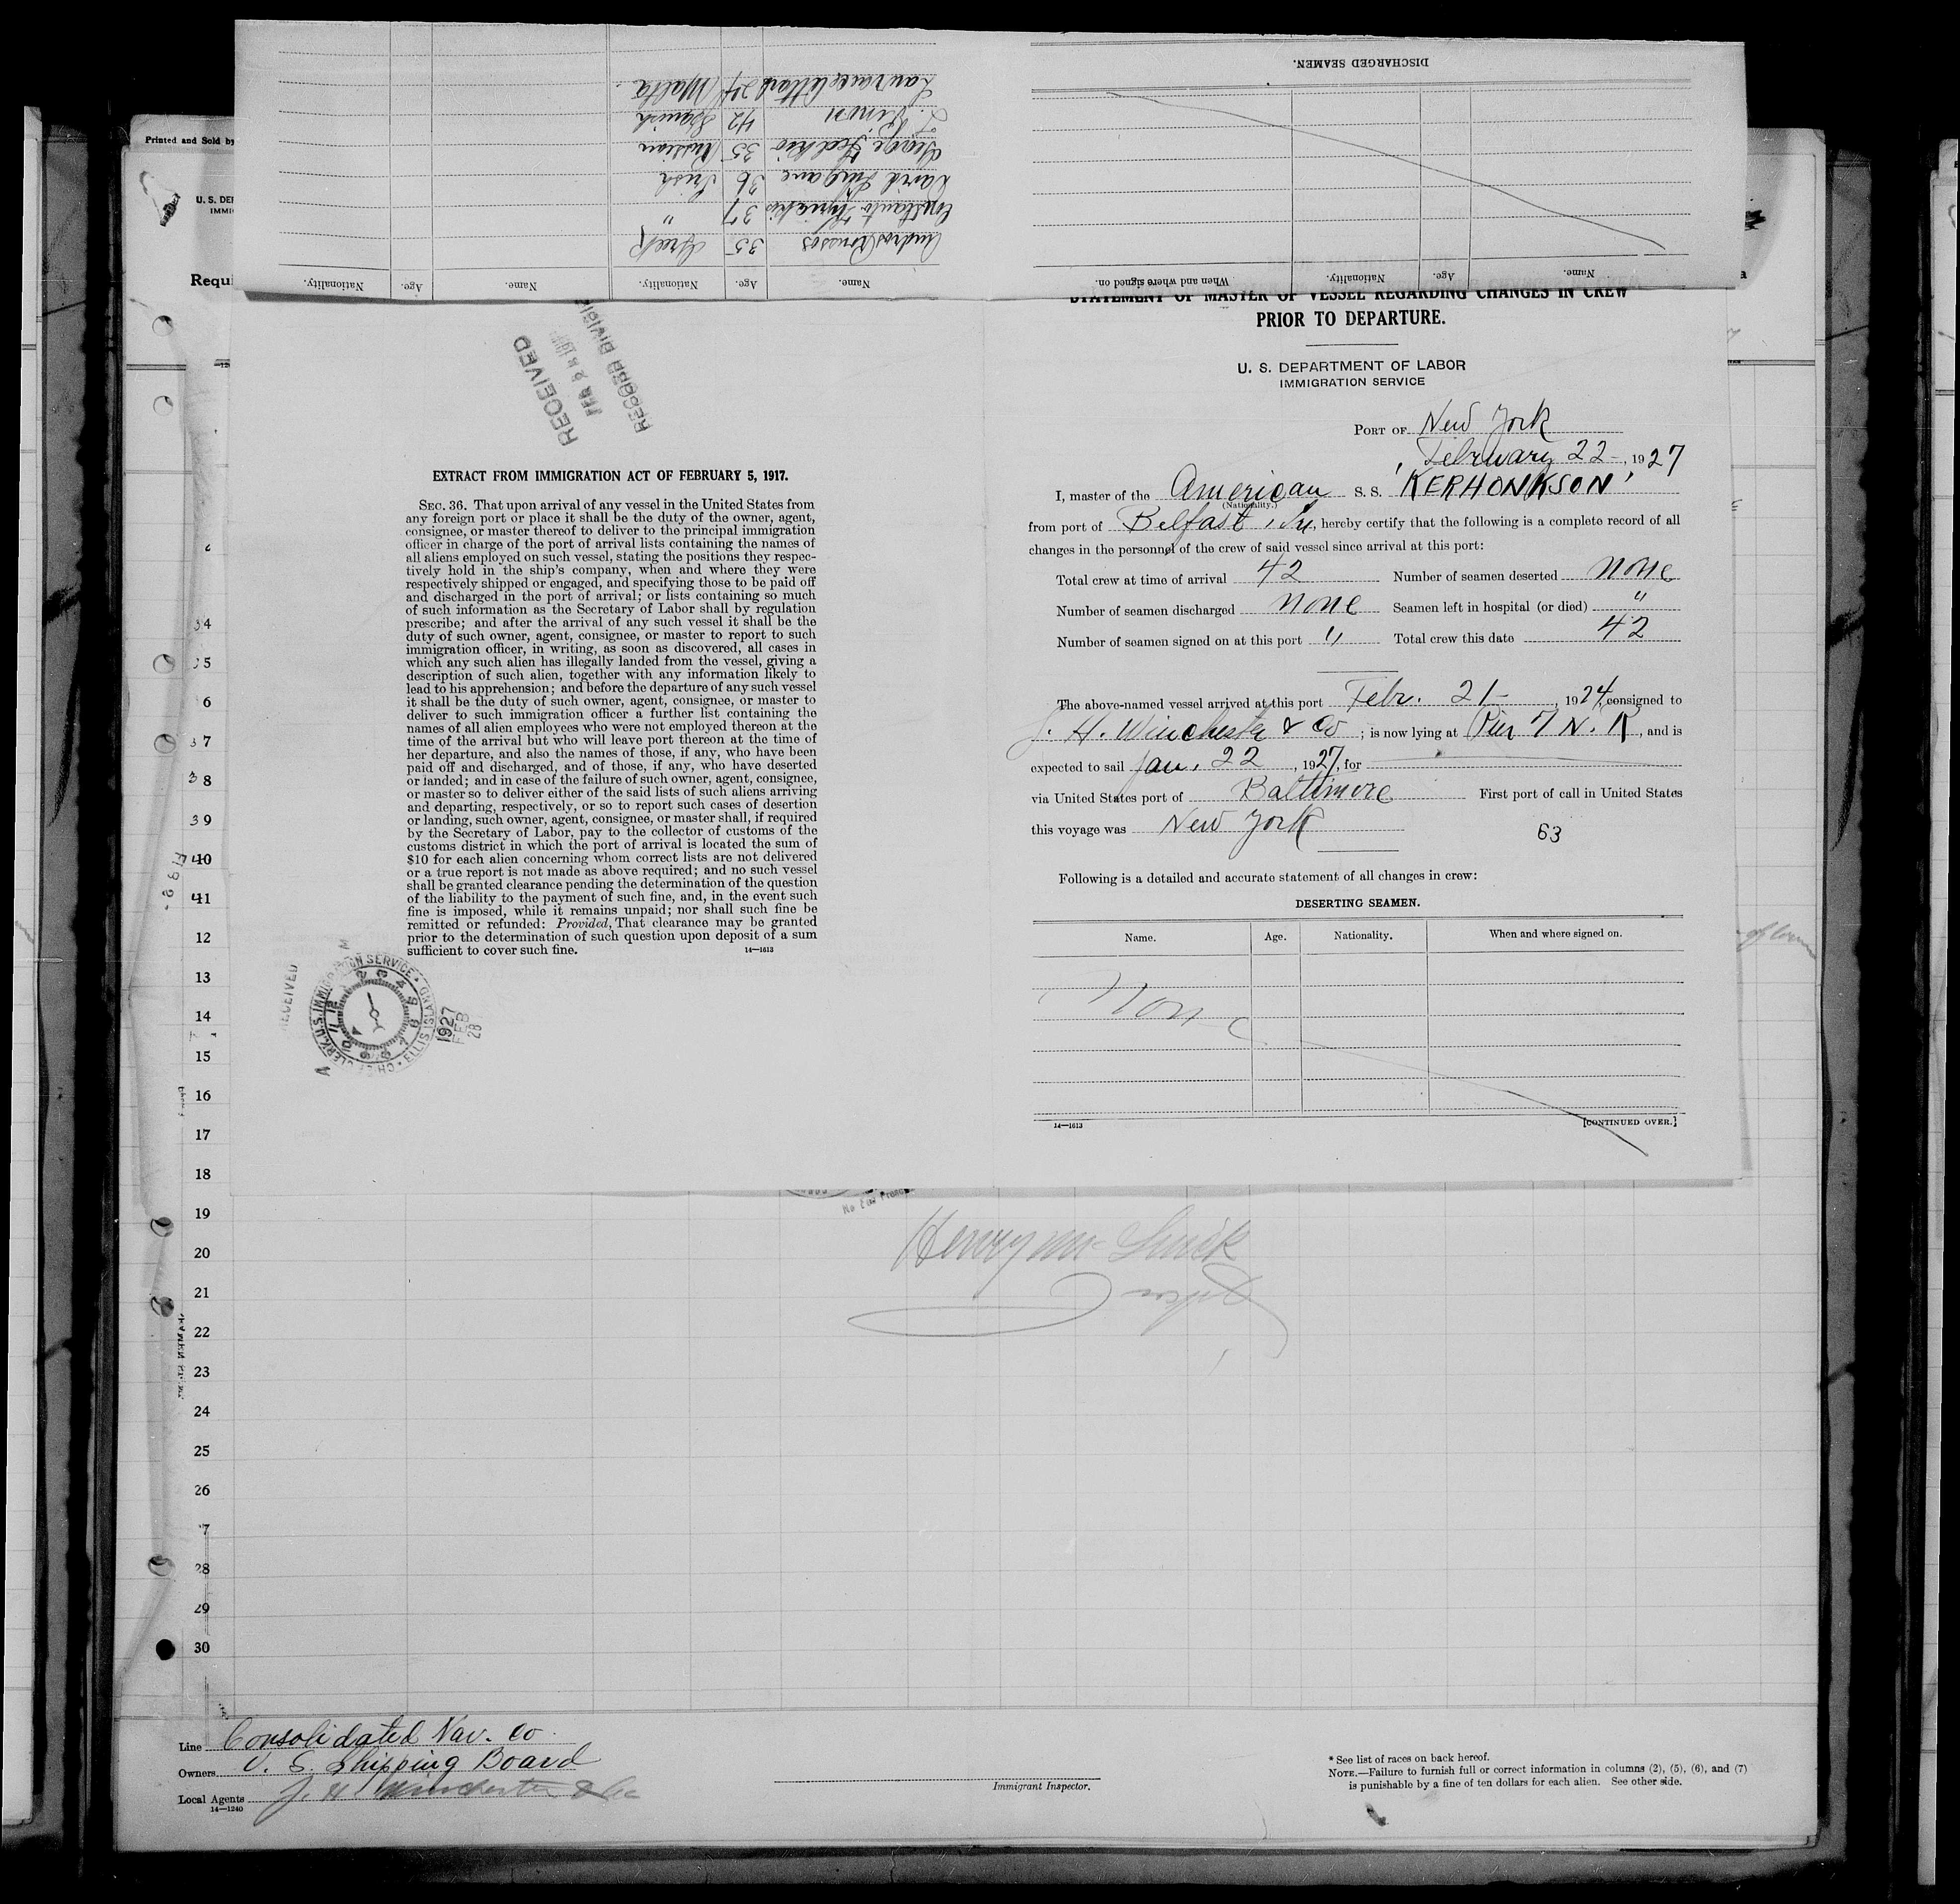 DISCHARGED SEAMEN.
Name. Age. Nationality. When and where signed on.
Name. Age. Nationality. Name. Age. Nationality.
Andros Roussos 35 Greek
37 "
David 36 Irish
George 35 Russian
42 Spanish
24 Malta
Printed and Sold by
U. S. DE
IMMI
Requi
RECEIVED
FEB 28
RECORD DIVISI
EXTRACT FROM IMMIGRATION ACT OF FEBRUARY 5, 1917.
SEC. 36. That upon arrival of any vessel in the United States from
any foreign port or place it shall be the duty of the owner, agent,
consignee, or master thereof to deliver to the principal immigration
officer in charge of the port of arrival lists containing the names of
all aliens employed on such vessel, stating the positions they respec-
tively hold in the ship's company, when and where they were
respectively shipped or engaged, and specifying those to be paid off
and discharged in the port of arrival; or lists containing so much
of such information as the Secretary of Labor shall by regulation
prescribe; and after the arrival of any such vessel it shall be the
duty of such owner, agent, consignee, or master to report to such
immigration officer, in writing, as soon as discovered, all cases in
which any such alien has illegally landed from the vessel, giving a
description of such alien, together with any information likely to
lead to his apprehension; and before the departure of any such vessel
it shall be the duty of such owner, agent, consignee, or master to
deliver to such immigration officer a further list containing the
names of all alien employees who were not employed thereon at the
time of the arrival but who will leave port thereon at the time of
her departure, and also the names of those, if any, who have been
paid off and discharged, and of those, if any, who have deserted
or landed; and in case of the failure of such owner, agent, consignee,
or master so to deliver either of the said lists of such aliens arriving
and departing, respectively, or so to report such cases of desertion
or landing, such owner, agent, consignee, or master shall, if required
by the Secretary of Labor, pay to the collector of customs of the
customs district in which the port of arrival is located the sum of
$10 for each alien concerning whom correct lists are not delivered
or a true report is not made as above required; and no such vessel
shall be granted clearance pending the determination of the question
of the liability to the payment of such fine, and, in the event such
fine is imposed, while it remains unpaid; nor shall such fine be
remitted or refunded: Provided, That clearance may be granted
prior to the determination of such question upon deposit of a sum
sufficient to cover such fine.
14—1613
RECEIVED
CHIEF CLERK, U.S. IMMIGRATION SERVICE ELLIS ISLAND
1927 FEB 28
STATEMENT OF MASTER OF VESSEL REGARDING CHANGES IN CREW
PRIOR TO DEPARTURE.
U. S. DEPARTMENT OF LABOR
IMMIGRATION SERVICE
PORT OF New York
February 22, 1927
I, master of the American S. S. 'KERHONKSON'
(Nationality.)
from port of Belfast, Ire, hereby certify that the following is a complete record of all
changes in the personnel of the crew of said vessel since arrival at this port:
Total crew at time of arrival 42 Number of seamen deserted none
Number of seamen discharged none Seamen left in hospital (or died) "
Number of seamen signed on at this port " Total crew this date 42
The above-named vessel arrived at this port Febr. 21, 1924, consigned to
J. H. Winchester & Co; is now lying at Pier 7 N. R, and is
expected to sail Jan. 22, 1927, for
via United States port of Baltimore First port of call in United States
this voyage was New York
63
Following is a detailed and accurate statement of all changes in crew:
DESERTING SEAMEN.
Name. Age. Nationality. When and where signed on.
None
14—1613 [CONTINUED OVER.]
34
35
6
37
38
39
40
41
12
13
14
15
16
17
18
19
20
21
22
23
24
25
26
27
28
29
30
Line Consolidated Nav. Co
Owners U. S. Shipping Board
Local Agents J. H. Winchester & Co
14—1240
Immigrant Inspector.
* See list of races on back hereof.
NOTE.—Failure to furnish full or correct information in columns (2), (5), (6), and (7)
is punishable by a fine of ten dollars for each alien. See other side.